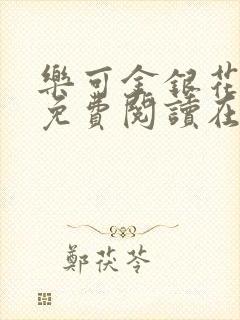 樂可金銀花
免費閱讀在
鄭茯苓